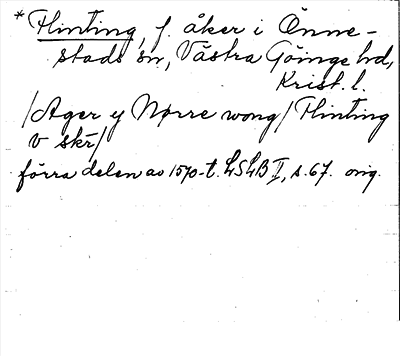 * Flinting, f. åker i Önne-
stads sn, Västra Göinge hd,
Krist. l.
/Ager y Nørre wong/ Flinting
v skr/
förra delen av 1570-t. LSLB II, s. 67. orig.